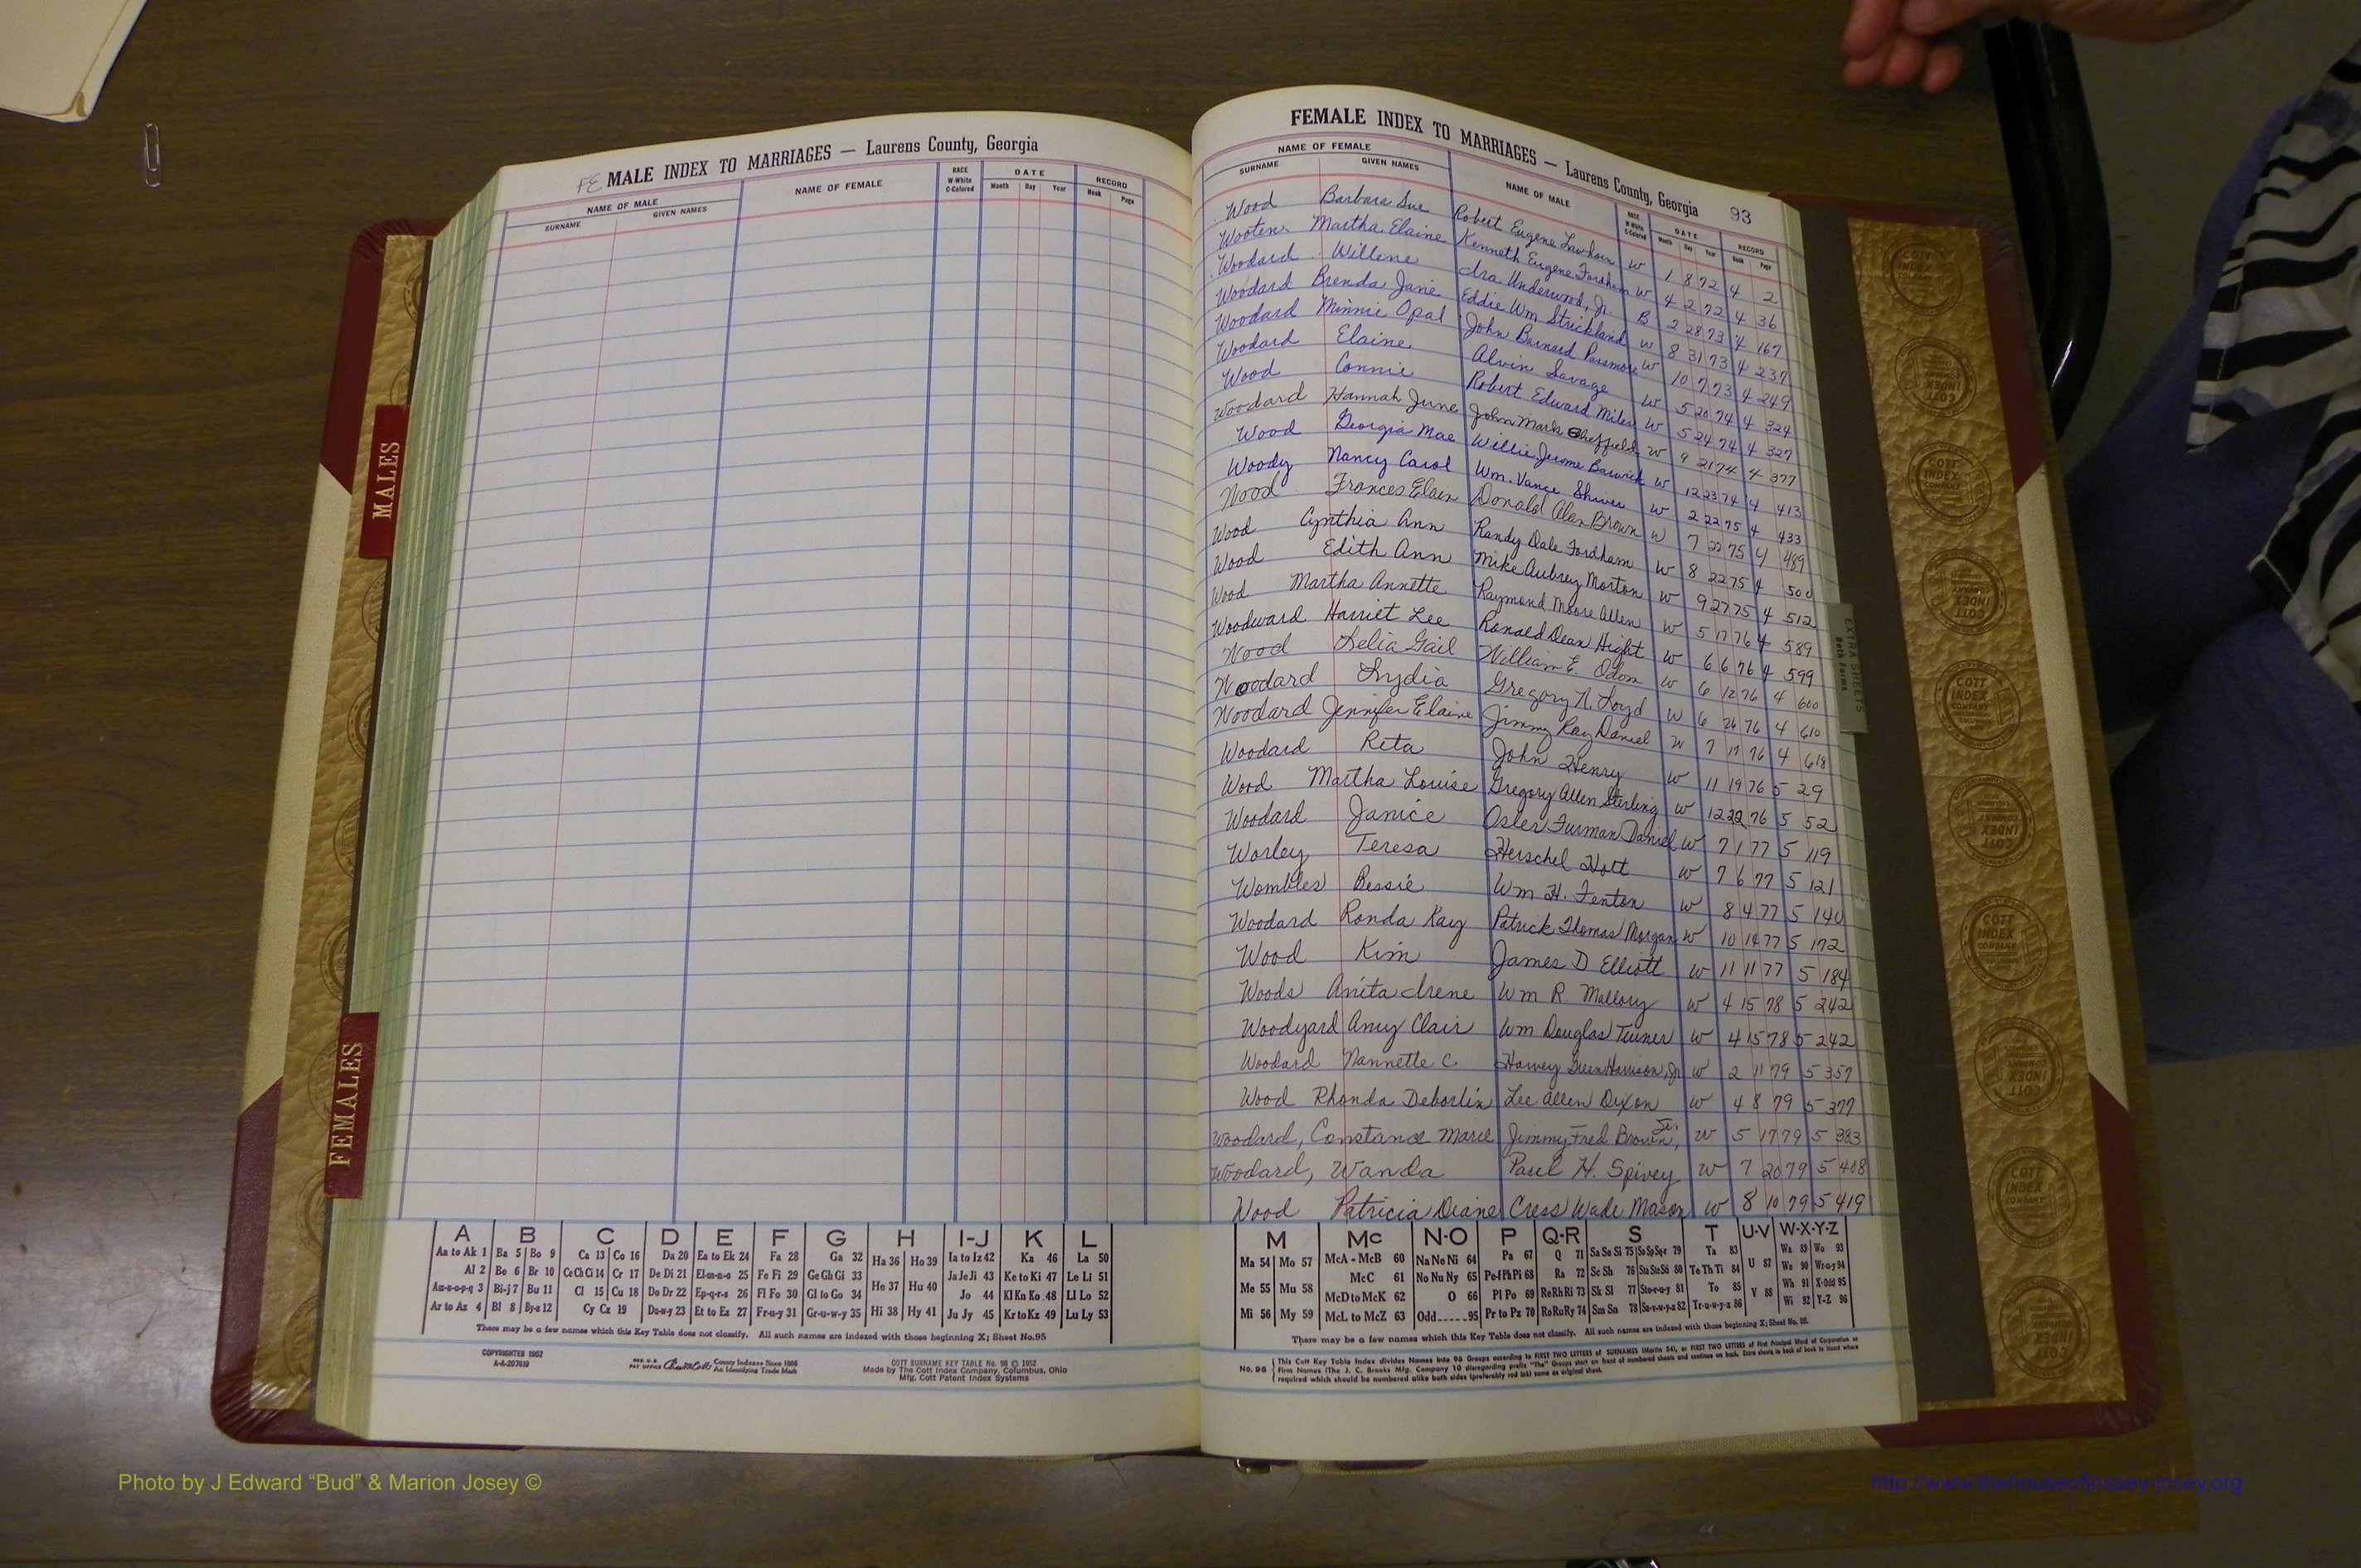 FE MALE INDEX TO MARRIAGES — Laurens County, Georgia
NAME OF MALE
SURNAME GIVEN NAMES
NAME OF FEMALE
RACE W-White C-Colored
DATE
Month Day Year
RECORD
Book Page
FEMALE INDEX TO MARRIAGES — Laurens County, Georgia 93
NAME OF FEMALE
SURNAME GIVEN NAMES
NAME OF MALE
RACE W-White C-Colored
DATE
Month Day Year
RECORD
Book Page
Wood Barbara Sue Robert Eugene Lawhorn W 1 8 72 4 2
Wooten Martha Elaine Kenneth Eugene Fordham W 4 2 72 4 36
Woodard Willene Ira Underwood, Jr. B 2 28 73 4 167
Woodard Brenda Jane Eddie Wm Strickland W 8 31 73 4 237
Woodard Minnie Opal John Barnard Passmore W 10 7 73 4 249
Woodard Elaine Alvin Savage W 5 20 74 4 324
Wood Connie Robert Edward Miles W 5 24 74 4 327
Woodard Hannah June John Mark Sheffield W 9 21 74 4 377
Wood Georgia Mae Willie Jerome Barwick W 12 23 74 4 413
Woody Nancy Carol Wm. Vance Shiver W 2 22 75 4 433
Wood Frances Elain Donald Alan Brown W 7 22 75 4 489
Wood Cynthia Ann Randy Dale Fordham W 8 22 75 4 500
Wood Edith Ann Mike Aubrey Morton W 9 27 75 4 512
Wood Martha Annette Raymond Moore Allen W 5 17 76 4 589
Woodward Harriet Lee Ronald Dean Hight W 6 6 76 4 599
Wood Delia Gail William E. Odom W 6 12 76 4 600
Woodard Lydia Gregory N. Loyd W 6 26 76 4 610
Woodard Jennifer Elaine Jimmy Ray Daniel W 7 17 76 4 618
Woodard Rita John Henry W 11 19 76 5 29
Wood Martha Louise Gregory Allen Sterling W 12 22 76 5 52
Woodard Janice Osler Furman Daniel W 7 1 77 5 119
Worley Teresa Herschel Hott W 7 6 77 5 121
Wombles Bessie Wm H. Fenton W 8 4 77 5 140
Woodard Ronda Kay Patrick Thomas Morgan W 10 14 77 5 172
Wood Kim James D Elliott W 11 11 77 5 184
Woods Anita Irene Wm R. Mallory W 4 15 78 5 242
Woodyard Amy Clair Wm Douglas Turner W 4 15 78 5 242
Woodard Nannette C Harvey Green Harrison, Jr W 2 11 79 5 357
Wood Rhonda Deborlin Lee Allen Dixon W 4 8 79 5 377
Woodard, Constance Marie Jimmy Fred Brown, Jr. W 5 17 79 5 383
Woodard, Wanda Paul H. Spivey W 7 20 79 5 408
Wood Patricia Diane Cress Wade Mason W 8 10 79 5 419
MALES
FEMALES
EXTRA SHEETS
Both Forms
COTT INDEX COMPANY
A B C D E F G H I-J K L
Aa to Ak 1 Ba 5 Bo 9 Ca 13 Co 16 Da 20 Ea to Ek 24 Fa 28 Ga 32 Ha 36 Ho 39 Ia to Iz 42 Ka 46 La 50
Al 2 Be 6 Br 10 Ce Ch Ci 14 Cr 17 De Di 21 El-m-n-o 25 Fe Fi 29 Ge Gh Gi 33 He 37 Hu 40 Ja Je Ji 43 Ke to Ki 47 Le Li 51
Am-n-o-p-q 3 Bi-j 7 Bu 11 Cl 15 Cu 18 Do Dr 22 Ep-q-r-s 26 Fl Fo 30 Gl to Go 34 Jo 44 Kl Kn Ko 48 Ll Lo 52
Ar to Az 4 Bl 8 By-z 12 Cy Cz 19 Du-w-y 23 Et to Ez 27 Fr-u-y 31 Gr-u-w-y 35 Hi 38 Hy 41 Ju Jy 45 Kr to Kz 49 Lu Ly 53
There may be a few names which this Key Table does not classify. All such names are indexed with those beginning X; Sheet No. 95
COPYRIGHTED 1952
A-A-207619
REG. U.S. PAT OFFICE County Indexes Since 1888
An Identifying Trade Mark
COTT SURNAME KEY TABLE No. 96 © 1952
Made by The Cott Index Company, Columbus, Ohio
Mfg. Cott Patent Index Systems
M Mc N-O P Q-R S T U-V W-X-Y-Z
Ma 54 Mo 57 McA - McB 60 Na Ne Ni 64 Pa 67 Q 71 Sa Se Si 75 So Sp Sq-r 79 Ta 83 U 87 Wa 89 Wo 93
Me 55 Mu 58 McC 61 No Nu Ny 65 Pe-f Ph Pi 68 Ra 72 Sc Sh 76 Sta Ste Sti 80 Te Th Ti 84 We 90 Wr-u-y 94
McD to McK 62 O 66 Pl Po 69 Re Rh Ri 73 Sk Sl 77 Sto-r-u-y 81 To 85 V 88 Wh 91 X-Odd 95
Mi 56 My 59 McL to McZ 63 Odd 95 Pr to Pz 70 Ro Ru Ry 74 Sm Sn 78 Su-v-w-y-z 82 Tr-u-w-y-z 86 Wi 92 Y-Z 96
There may be a few names which this Key Table does not classify. All such names are indexed with those beginning X; Sheet No. 95.
No. 96 This Cott Key Table Index divides Names into 96 Groups according to FIRST TWO LETTERS of SURNAMES (Martin 54), or FIRST TWO LETTERS of First Principal Word of Corporation or
Firm Names (The J. C. Brooks Mfg. Company 10 disregarding prefix "The" Groups start on front of numbered sheets and continue on back. Extra sheets in back of book to insert where
required which should be numbered alike both sides (preferably red ink) same as original sheet.
Photo by J Edward “Bud” & Marion Josey ©
http://www.thehouseofjossey-josey.org